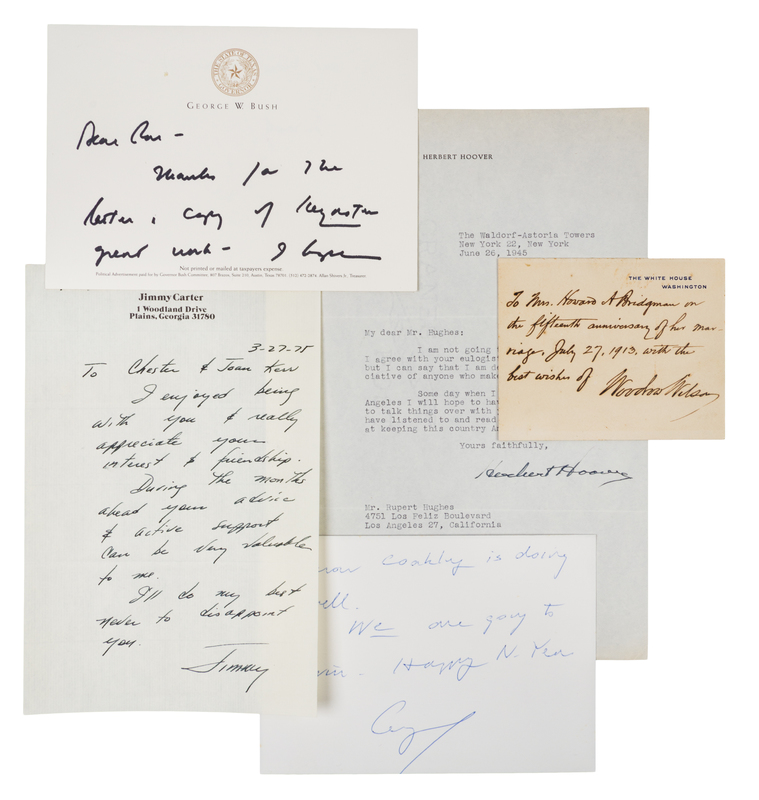 THE STATE OF TEXAS
GOVERNOR
GEORGE W. BUSH
Dear
Thanks for the
letter & copy of
great work - I
Not printed or mailed at taxpayers expense.
Political Advertisement paid for by Governor Bush Committee, Austin, Texas Treasurer
HERBERT HOOVER
The Waldorf-Astoria Towers
New York 22, New York
June 26, 1945
My dear Mr. Hughes:
I am not going
I agree with your eulogist
but I can say that I am de
ciative of anyone who make
Some day when I
Angeles I will hope to hav
to talk things over with y
have listened to and read
at keeping this country Am
Yours faithfully,
Herbert Hoover
Mr. Rupert Hughes
4751 Los Feliz Boulevard
Los Angeles 27, California
THE WHITE HOUSE
WASHINGTON
To Mrs. Howard A Bridgman on
the fifteenth anniversary of his mar-
riage, July 27, 1913, with the
best wishes of Woodrow Wilson
Jimmy Carter
1 Woodland Drive
Plains, Georgia 31780
3-27-75
To Chester & Joan Kerr
I enjoyed being
with you & really
appreciate your
interest & friendship.
During the months
ahead your advice
& active support
can be very valuable
to me.
I'll do my best
never to disappoint
you.
Jimmy
coakley is doing
ell.
We are going to
Happy N. Year